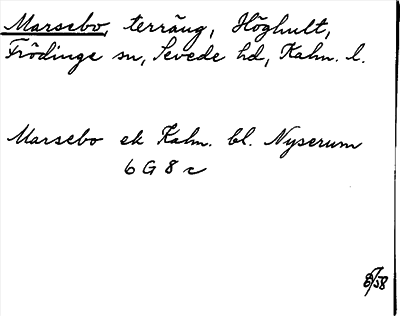 Marsebo, terräng, Höghult,
Frödinge sn, Sevede hd, Kalm. l.
Marsebo ek Kalm. bl. Nyserum
6 G 8 c